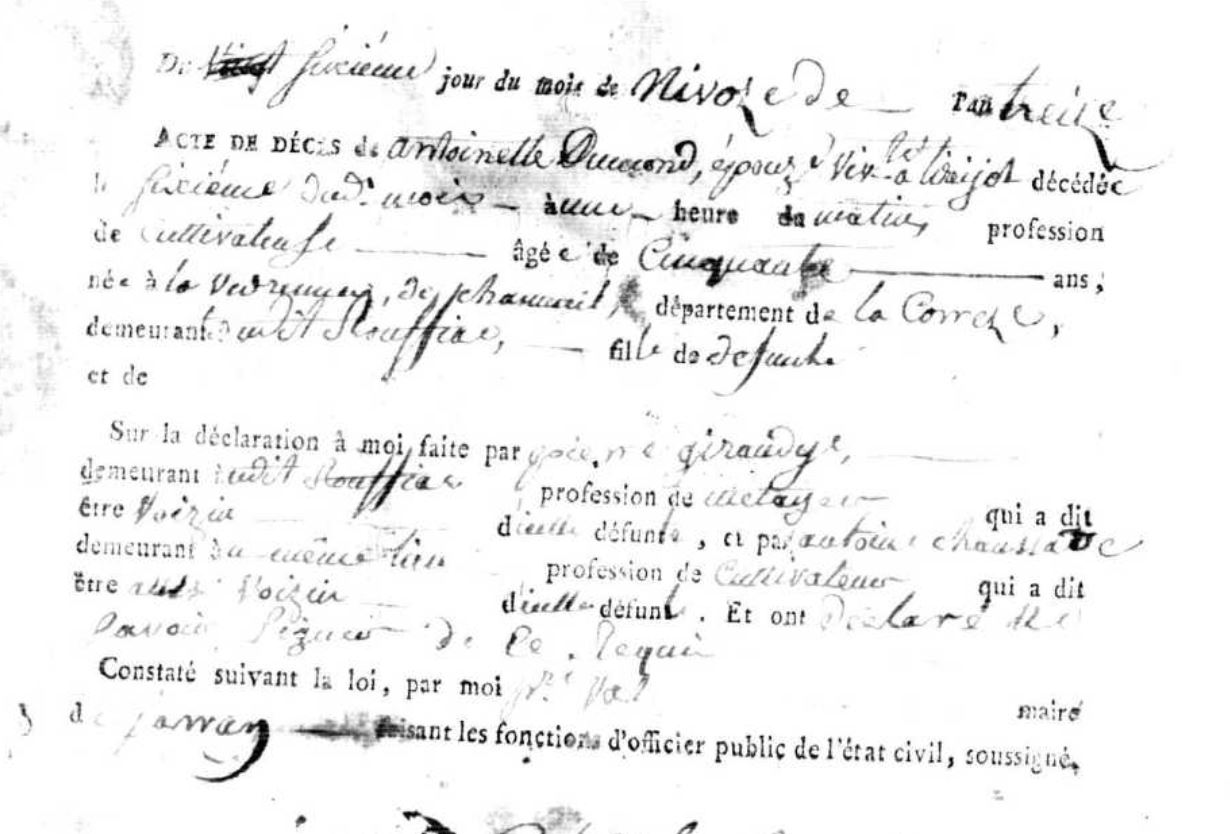 Du vingt sixiéme jour du mois de Nivoze de l'an treize
ACTE DE DÉCÈS de antoinette Dumond, épouze décédée
le sixiéme dud. mois à une heure du matin, profession
de Cultivateuse âgée de Cinquante ans ;
née à la vedrenne, de chaumeil, département de la Correze,
demeurant audit Rouffiac, fille de defunte
et de
Sur la déclaration à moi faite par pierre giraudye,
demeurant audit Rouffiac profession de metayer qui a dit
être Voizin d'icelle défunte, et par antoine chaussade
demeurant au même lieu profession de Cultivateur qui a dit
être aussi Voizin d'icelle défunte. Et ont declaré ne
savoir signer de ce requis
Constaté suivant la loi, par moi maire
de jarran faisant les fonctions d'officier public de l'état civil, soussigné.